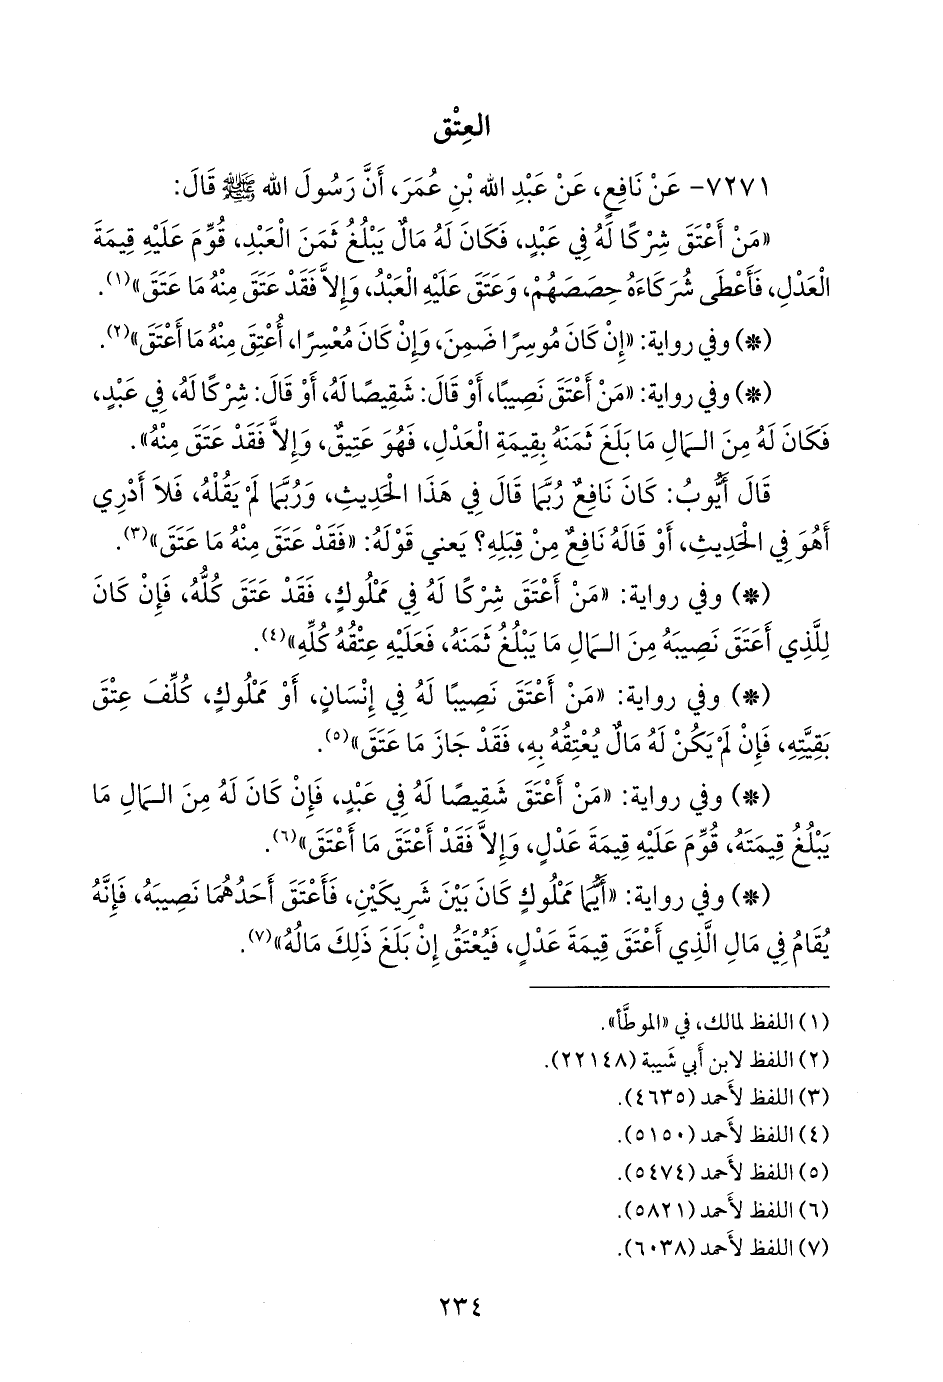 العِتْق
٧٢٧١- عَنْ نَافِعٍ، عَنْ عَبْدِ الله بْنِ عُمَرَ، أَنَّ رَسُولَ الله ﷺ قَالَ:
«مَنْ أَعْتَقَ شِرْكًا لَهُ فِي عَبْدٍ، فَكَانَ لَهُ مَالٌ يَبْلُغُ ثَمَنَ الْعَبْدِ، قُوِّمَ عَلَيْهِ قِيمَةَ
الْعَدْلِ، فَأَعْطَى شُرَكَاءَهُ حِصَصَهُمْ، وَعَتَقَ عَلَيْهِ الْعَبْدُ، وَإِلاَّ فَقَدْ عَتَقَ مِنْهُ مَا عَتَقَ»(١).
(*) وفي رواية: «إِنْ كَانَ مُوسِرًا ضَمِنَ، وَإِنْ كَانَ مُعْسِرًا، أُعْتِقَ مِنْهُ مَا أَعْتَقَ»(٢).
(*) وفي رواية: «مَنْ أَعْتَقَ نَصِيبًا، أَوْ قَالَ: شَقِيصًا لَهُ، أَوْ قَالَ: شِرْكًا لَهُ، فِي عَبْدٍ،
فَكَانَ لَهُ مِنَ الـمَالِ مَا بَلَغَ ثَمَنَهُ بِقِيمَةِ الْعَدْلِ، فَهُوَ عَتِيقٌ، وَإِلاَّ فَقَدْ عَتَقَ مِنْهُ».
قَالَ أَيُّوبُ: كَانَ نَافِعٌ رُبَّمَا قَالَ فِي هَذَا الْحَدِيثِ، وَرُبَّمَا لَمْ يَقُلْهُ، فَلاَ أَدْرِي
أَهُوَ فِي الْحَدِيثِ، أَوْ قَالَهُ نَافِعٌ مِنْ قِبَلِهِ؟ يَعني قَوْلَهُ: «فَقَدْ عَتَقَ مِنْهُ مَا عَتَقَ»(٣).
(*) وفي رواية: «مَنْ أَعْتَقَ شِرْكًا لَهُ فِي مَمْلُوكٍ، فَقَدْ عَتَقَ كُلُّهُ، فَإِنْ كَانَ
لِلَّذِي أَعَتَقَ نَصِيبَهُ مِنَ الـمَالِ مَا يَبْلُغُ ثَمَنَهُ، فَعَلَيْهِ عِتْقُهُ كُلِّهِ»(٤).
(*) وفي رواية: «مَنْ أَعْتَقَ نَصِيبًا لَهُ فِي إِنْسَانٍ، أَوْ مَمْلُوكٍ، كُلِّفَ عِتْقَ
بَقِيَّتِهِ، فَإِنْ لَمْ يَكُنْ لَهُ مَالٌ يُعْتِقُهُ بِهِ، فَقَدْ جَازَ مَا عَتَقَ»(٥).
(*) وفي رواية: «مَنْ أَعْتَقَ شَقِيصًا لَهُ فِي عَبْدٍ، فَإِنْ كَانَ لَهُ مِنَ الـمَالِ مَا
يَبْلُغُ قِيمَتَهُ، قُوِّمَ عَلَيْهِ قِيمَةَ عَدْلٍ، وَإِلاَّ فَقَدْ أَعْتَقَ مَا أَعْتَقَ»(٦).
(*) وفي رواية: «أَيُّمَا مَمْلُوكٍ كَانَ بَيْنَ شَرِيكَيْنِ، فَأَعْتَقَ أَحَدُهُمَا نَصِيبَهُ، فَإِنَّهُ
يُقَامُ فِي مَالِ الَّذِي أَعْتَقَ قِيمَةَ عَدْلٍ، فَيُعْتَقُ إِنْ بَلَغَ ذَلِكَ مَالُهُ»(٧).
(١) اللفظ لمالك، في «الموطَّأ».
(٢) اللفظ لابن أَبي شَيبة (٢٢١٤٨).
(٣) اللفظ لأَحمد (٤٦٣٥).
(٤) اللفظ لأَحمد (٥١٥٠).
(٥) اللفظ لأَحمد (٥٤٧٤).
(٦) اللفظ لأَحمد (٥٨٢١).
(٧) اللفظ لأَحمد (٦٠٣٨).
٢٣٤